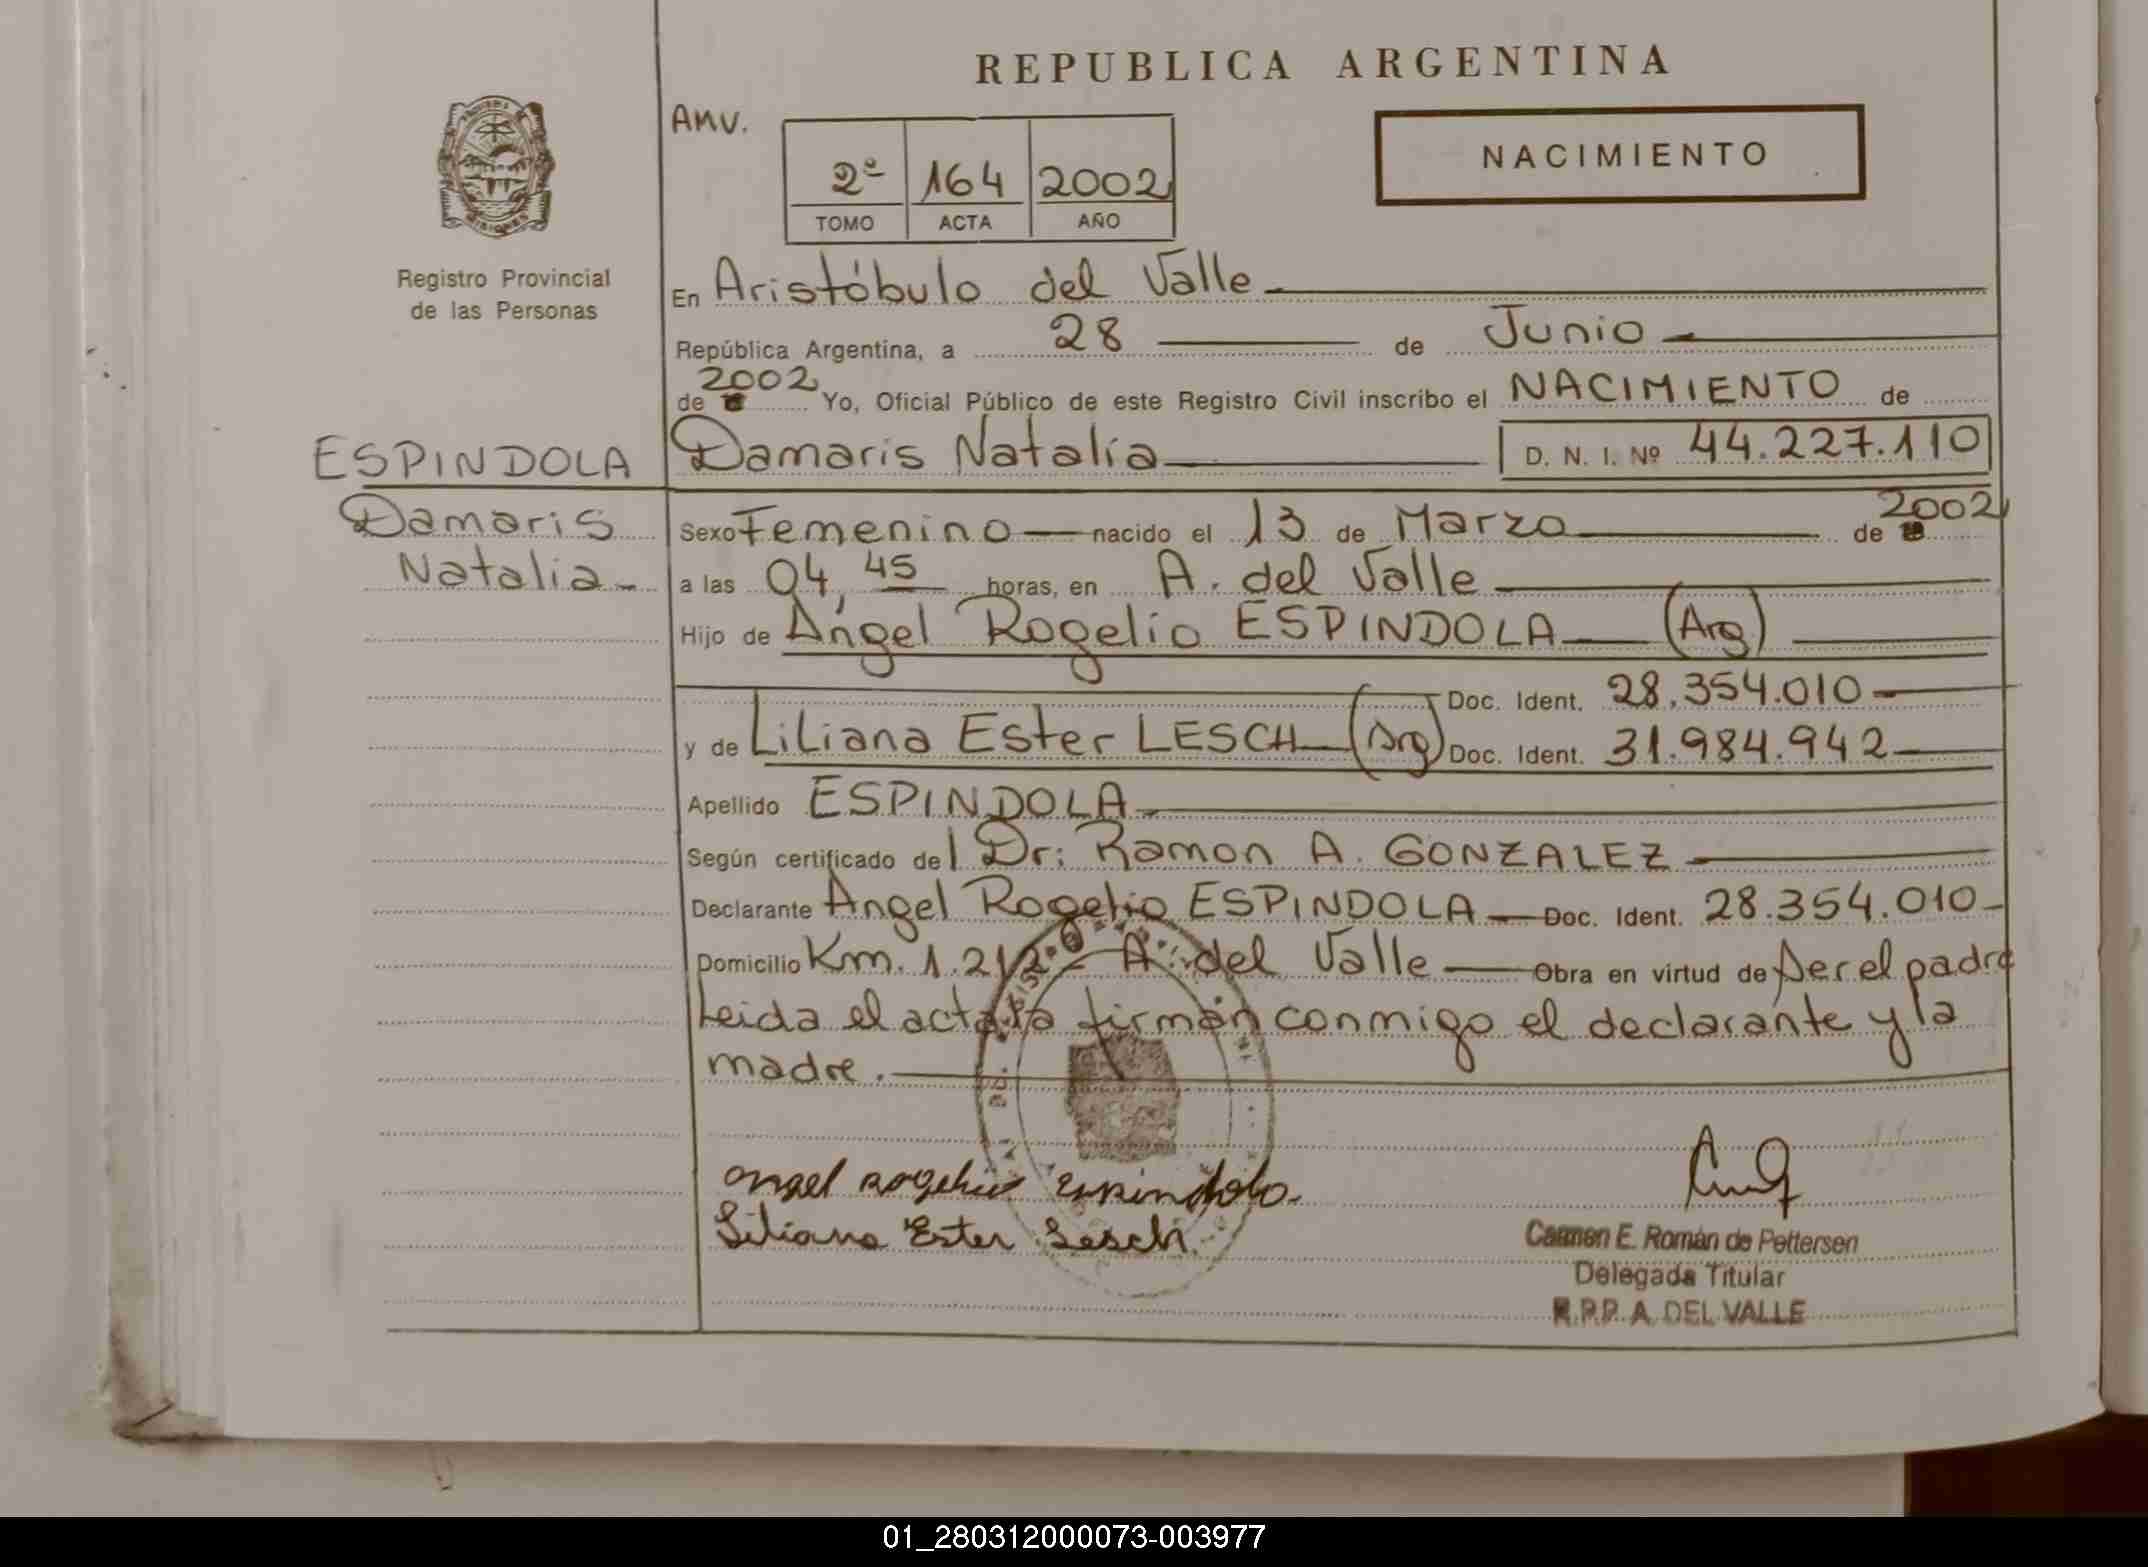 REPUBLICA ARGENTINA
AMV.
2º 164 2002
TOMO ACTA AÑO
NACIMIENTO
Registro Provincial
de las Personas
En Aristóbulo del Valle
República Argentina, a 28 de Junio
de 2002 Yo, Oficial Público de este Registro Civil inscribo el NACIMIENTO de
ESPINDOLA Damaris Natalia D. N. I. Nº 44.227.110
Damaris Sexo Femenino nacido el 13 de Marzo de 2002
Natalia a las 04,45 horas, en A. del Valle
Hijo de Angel Rogelio ESPINDOLA (Arg)
Doc. Ident. 28.354.010
y de Liliana Ester LESCH (Arg) Doc. Ident. 31.984.942
Apellido ESPINDOLA
Según certificado del Dr: Ramon A. GONZALEZ
Declarante Angel Rogelio ESPINDOLA Doc. Ident. 28.354.010
Domicilio Km. 1.212 - A. del Valle Obra en virtud de ser el padre
Leida el acta la firman conmigo el declarante y la
madre.
angel Rogelio Espindola.
Liliana Ester Lesch
Carmen E. Román de Pettersen
Delegada Titular
R.P.P. A. DEL VALLE
01_280312000073-003977